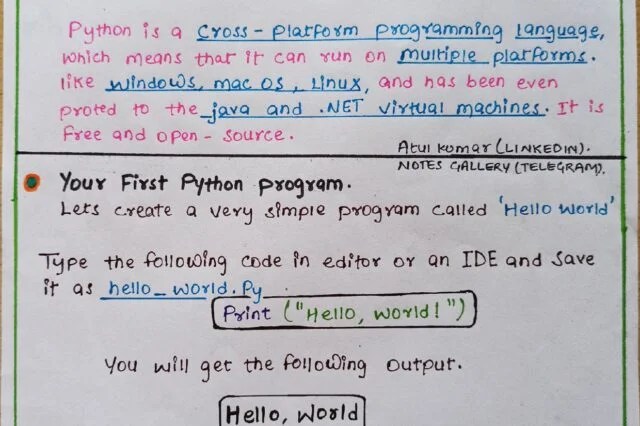 Python is a cross-platform programming language,
which means that it can run on multiple platforms.
like windows, mac OS, Linux, and has been even
proted to the java and .NET virtual machines. It is
free and open-source.
Atul Kumar (LINKEDIN).
NOTES GALLERY (TELEGRAM).
Your First Python program.
Lets create a very simple program called 'Hello World'
Type the following code in editor or an IDE and save
it as hello_world.Py
Print ("Hello, World!")
You will get the following output.
Hello, World